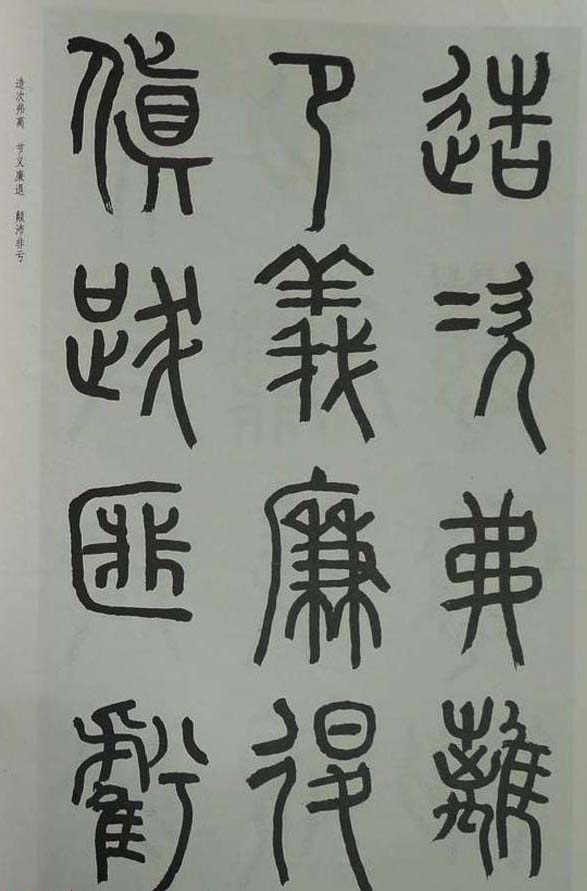 造次弗離
卪義廉退
傎跋匪虧
造次弗离 节义廉退 颠沛非亏